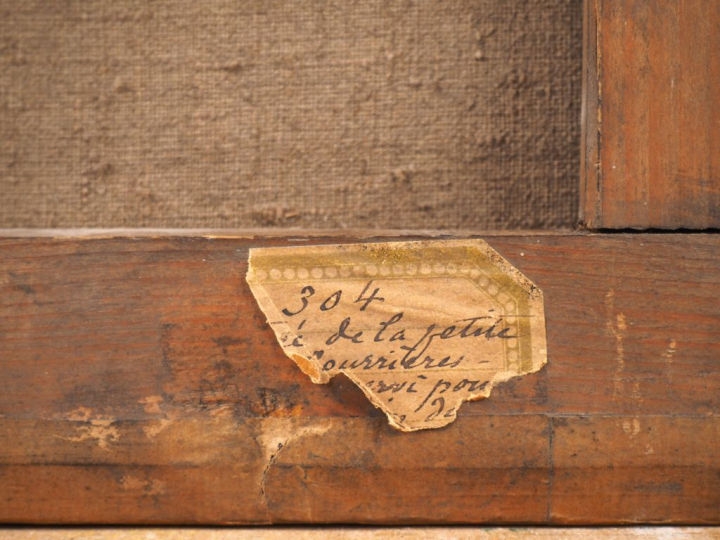 304
de la petite
ourrières-
ervi pour
de